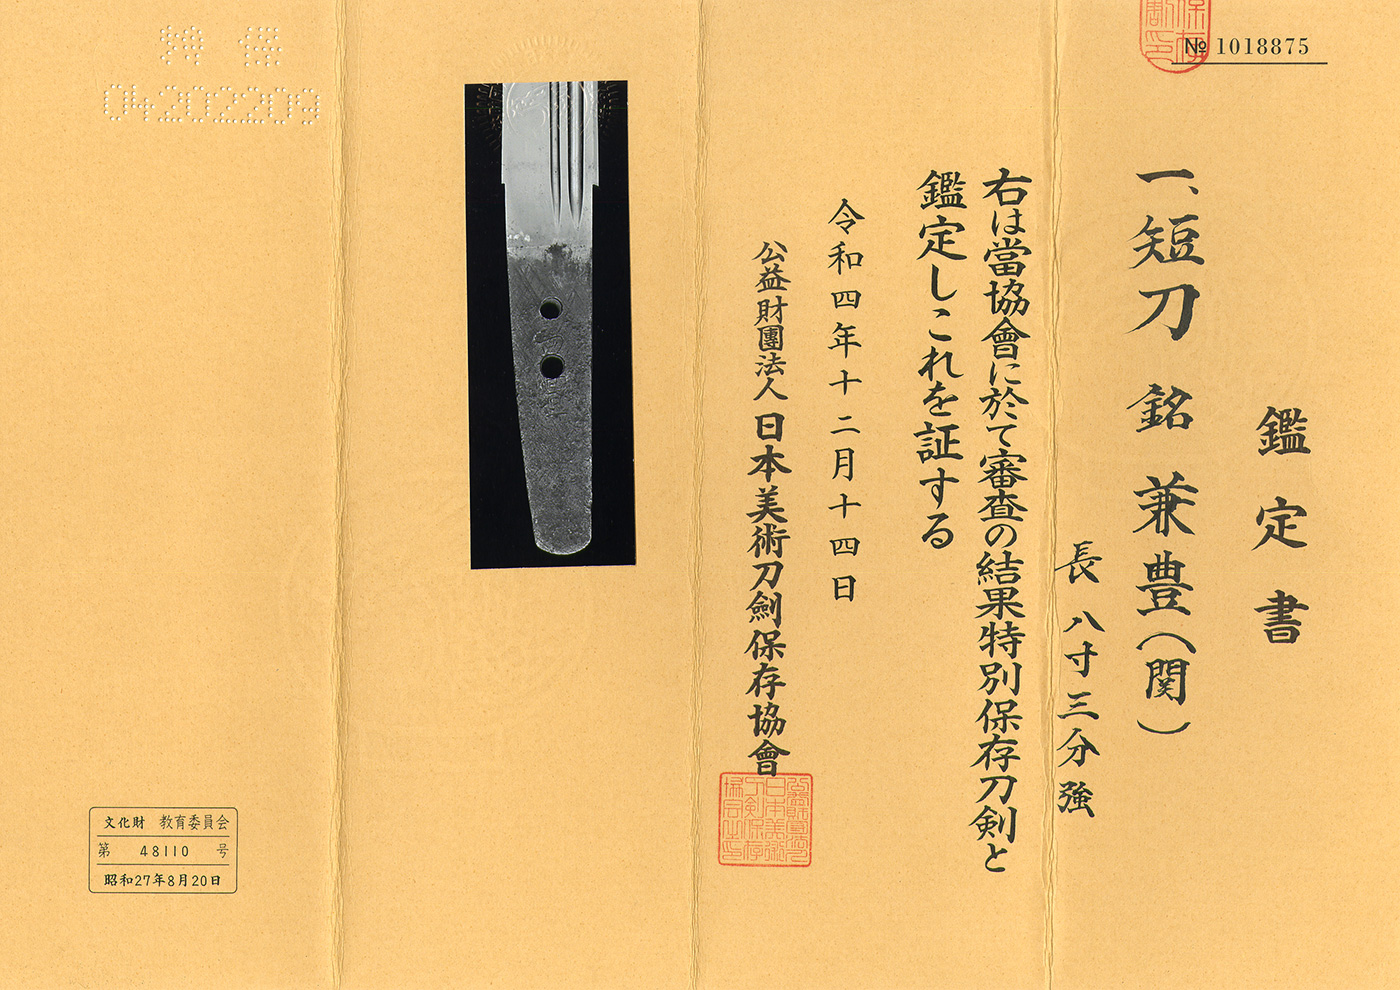 № 1018875
鑑定書
一、短刀 銘 兼豊(関)
長 八寸三分強
右は當協會に於て審査の結果特別保存刀剣と
鑑定しこれを証する
令和四年十二月十四日
公益財團法人 日本美術刀劍保存協會
特保
04202209
文化財 教育委員会
第 48110 号
昭和27年8月20日